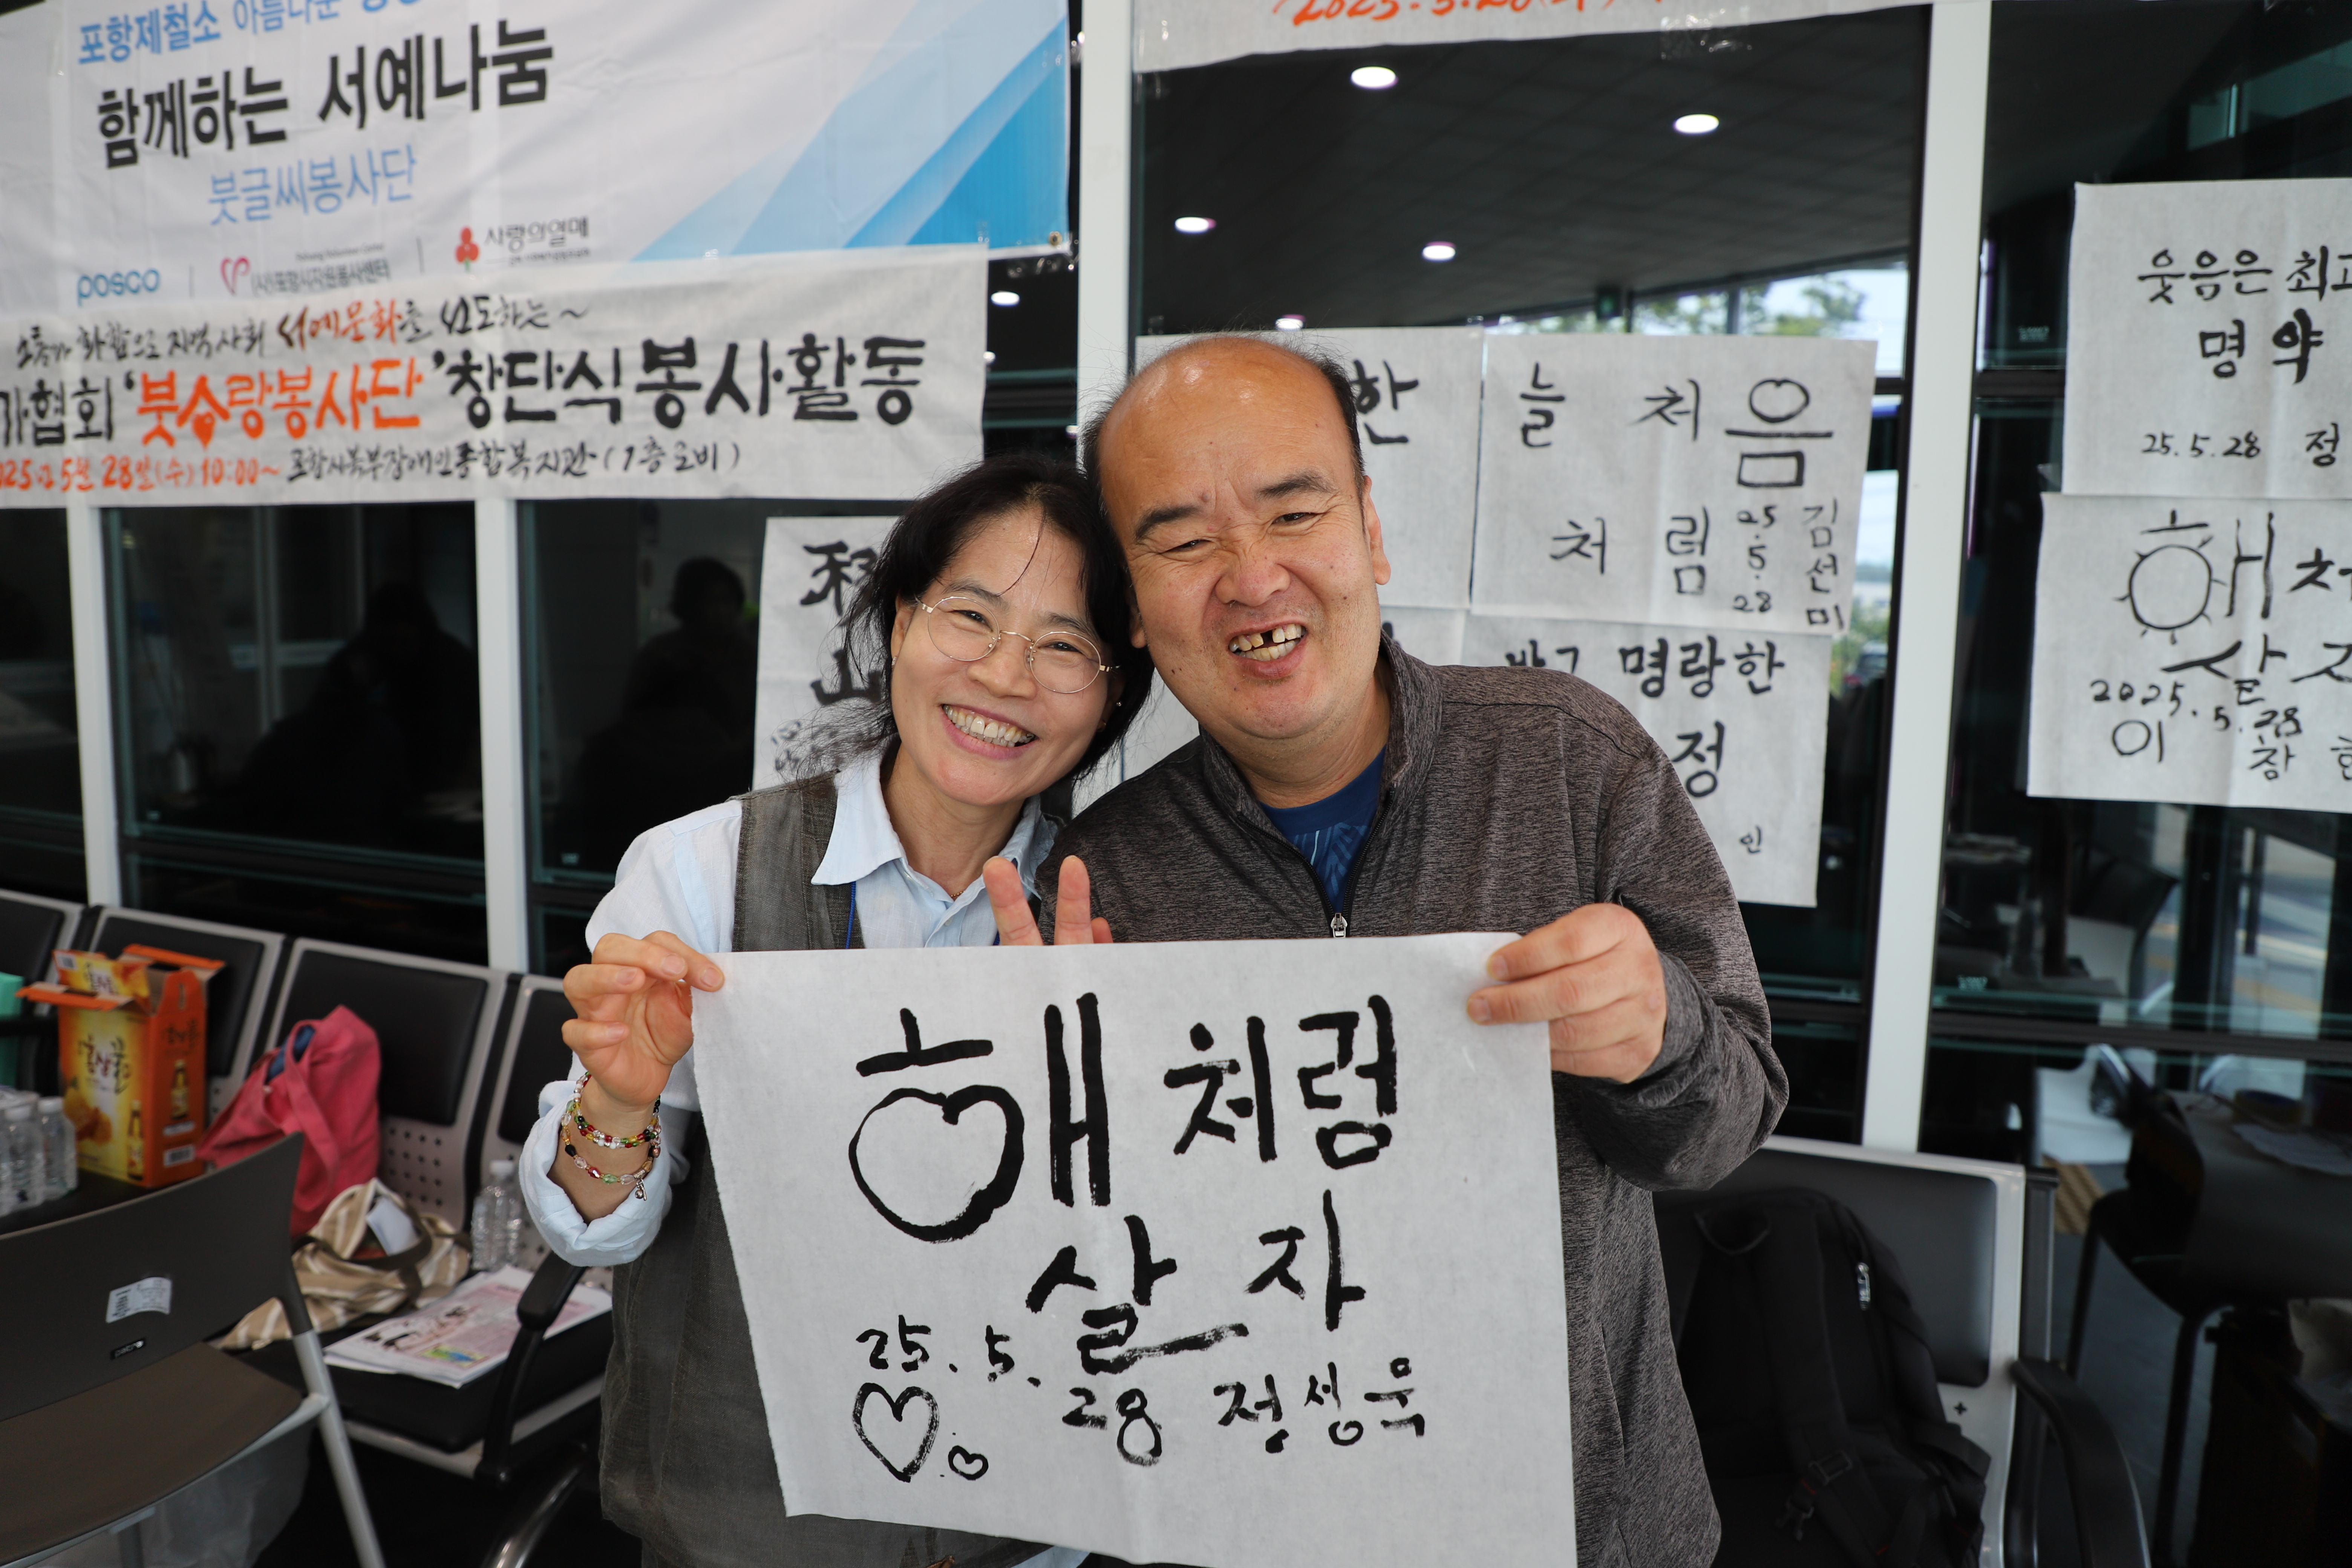 포항제철소 아름다운
함께하는 서예나눔
붓글씨봉사단
posco
(사)포항시자원봉사센터
사랑의열매
화합으로 지역사회 서예문화를 선도하는~
가협회 '붓사랑봉사단' 창단식 봉사활동
2025.5월 28일(수) 10:00~ 포항시북부장애인종합복지관(1층로비)
2025.5.28(수)
한
늘 처음
처럼
25.5.28
김선미
명랑한
정
인
웃음은 최고
명약
25.5.28 정
해처
살자
2025.5.28
이창
山
해처럼
살자
25.5.28 정성욱